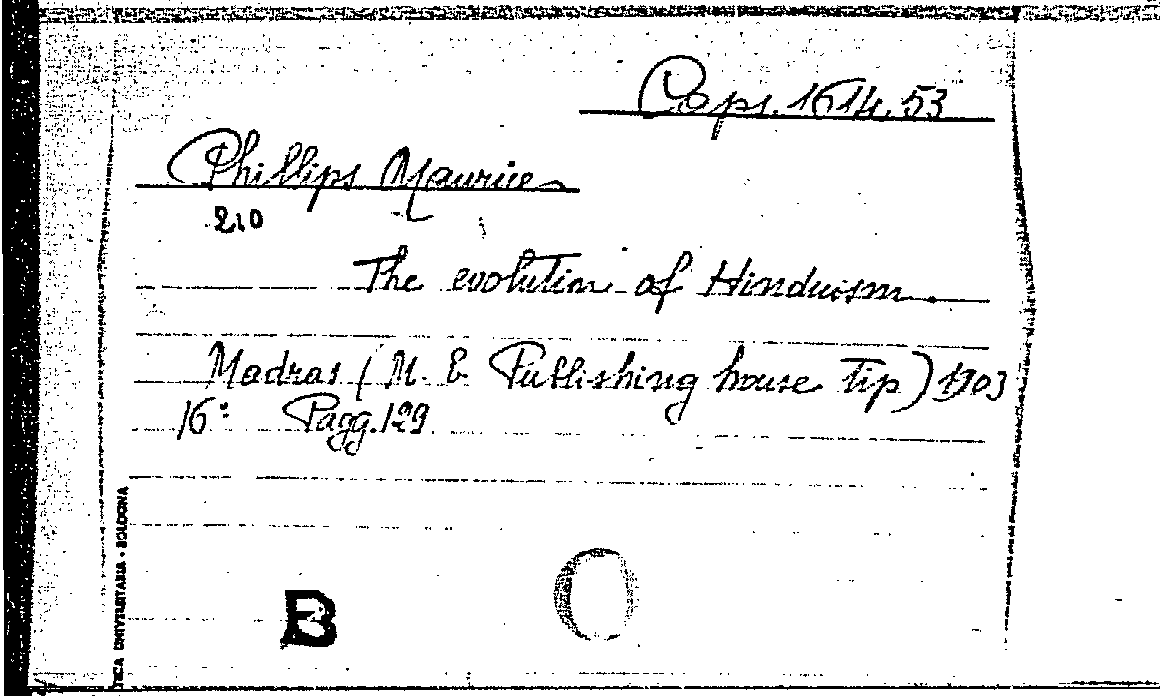 Caps. 1614.53
Phillips Maurice
210
The evolution of Hinduism
Madras (M. E Publishing house tip) 1903
16° Pagg. 129
TECA UNIVERSITARIA • BOLOGNA
B